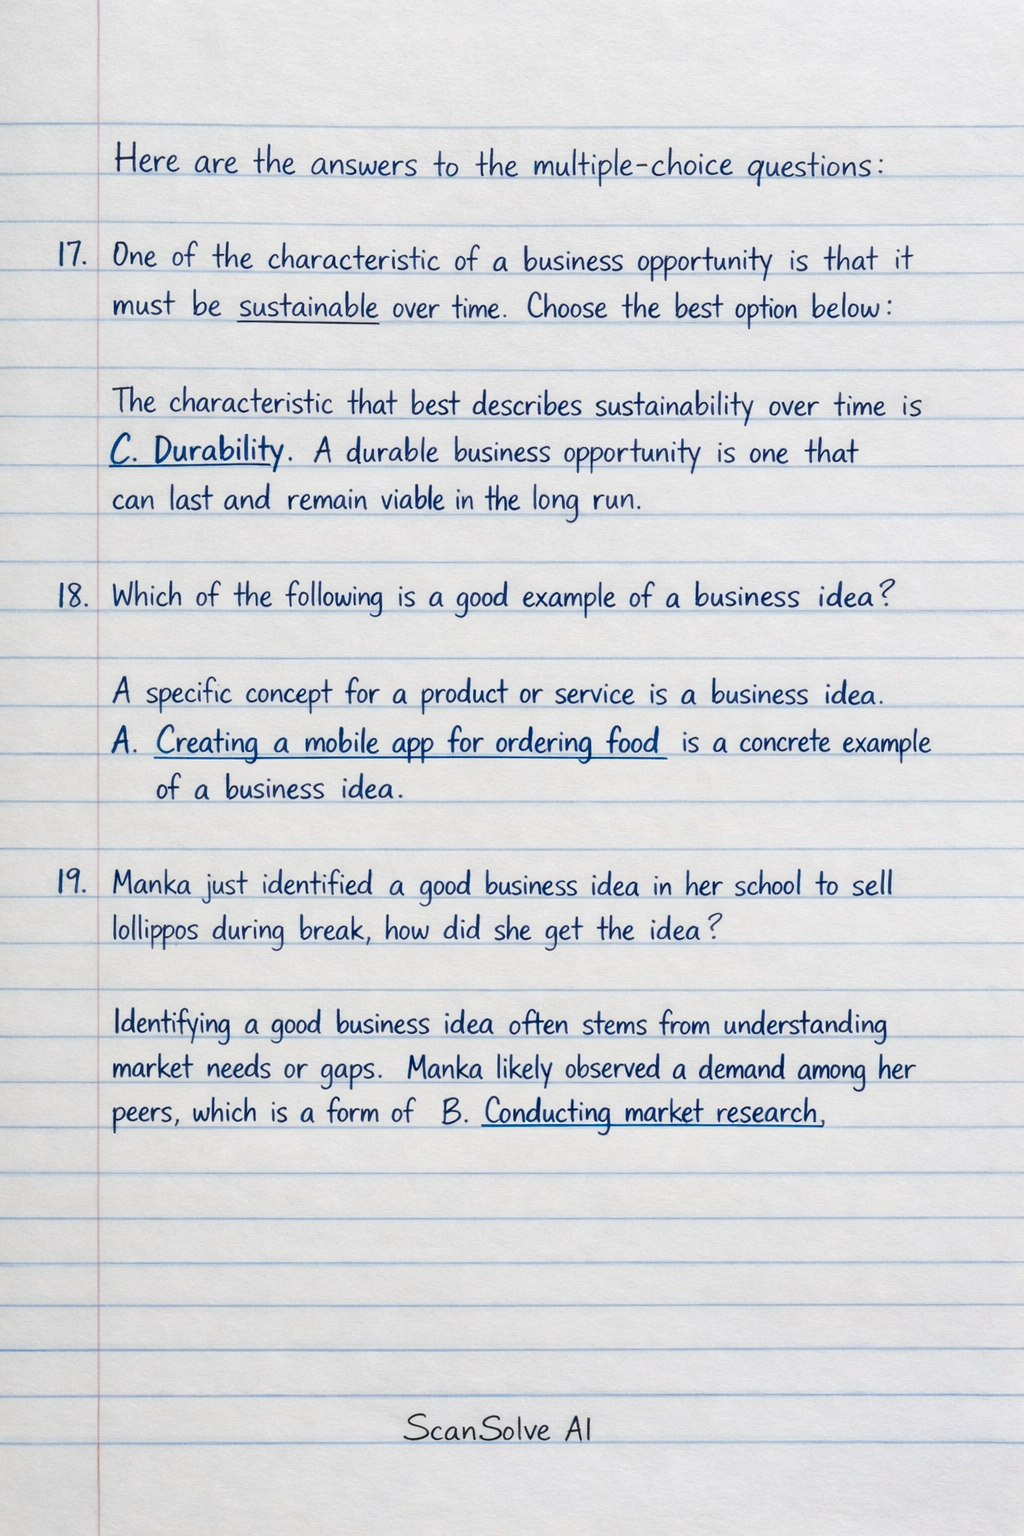 Here are the answers to the multiple-choice questions:
17. One of the characteristic of a business opportunity is that it
must be sustainable over time. Choose the best option below:
The characteristic that best describes sustainability over time is
C. Durability. A durable business opportunity is one that
can last and remain viable in the long run.
18. Which of the following is a good example of a business idea?
A specific concept for a product or service is a business idea.
A. Creating a mobile app for ordering food is a concrete example
of a business idea.
19. Manka just identified a good business idea in her school to sell
lollippos during break, how did she get the idea?
Identifying a good business idea often stems from understanding
market needs or gaps. Manka likely observed a demand among her
peers, which is a form of B. Conducting market research,
ScanSolve AI